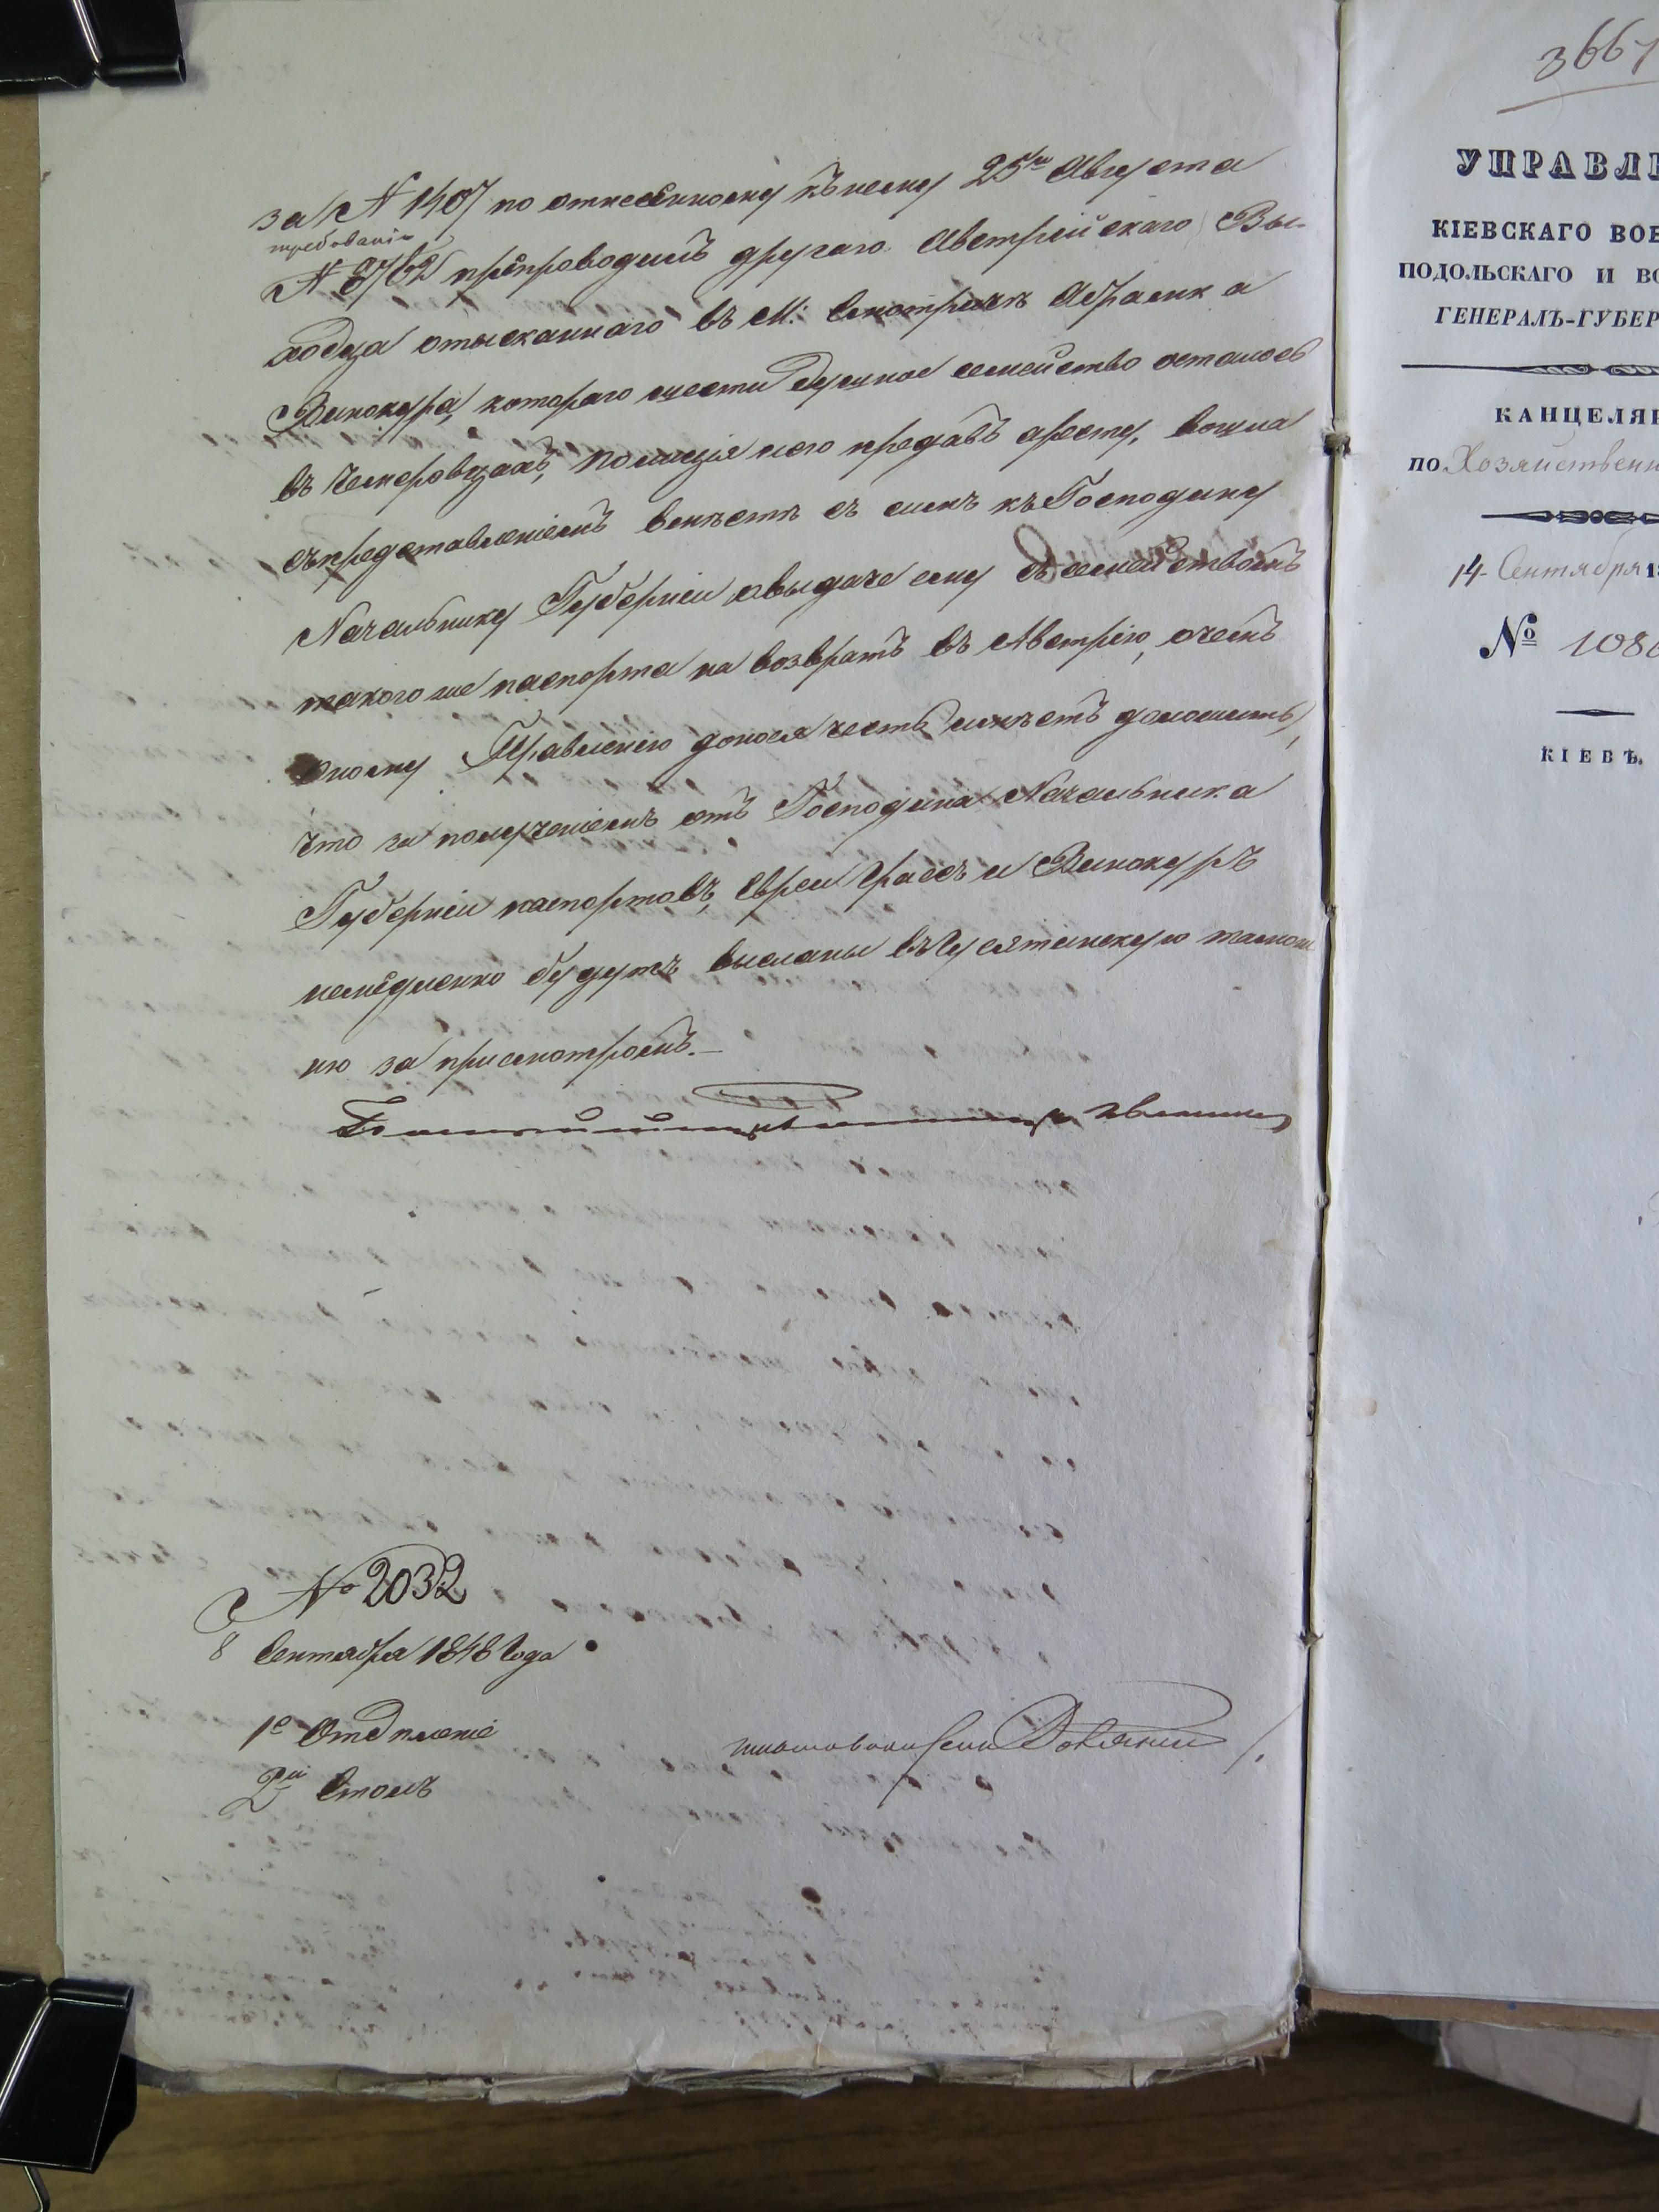 за N 1407 по отнесенному къ нему 25го Августа
требованію
N 8762 препроводилъ другаго Австрійскаго Вы-
ходца отысканнаго въ М: Смотричѣ Абрамка
Винокура, котораго шести душное семейство осталось
въ Чемеровцахъ, Полиція его предавъ аресту, вошла
съ представленіемъ вмѣстѣ съ симъ къ Господину
Начальнику Губерніи о выдаче ему съ семействомъ
такого же паспорта на возвратъ въ Австрію, о чемъ
оному Правленію донося честь имѣетъ доложить,
что за полученіемъ отъ Господина Начальника
Губерніи паспортовъ, Евреи Грасъ и Винокуръ
немедленно будутъ высланы въ Гусятинскую таможню
ню за присмотромъ.
№ 2032
8 Сентября 1848 Года
1е Отдѣленіе
2й Столъ
366
УПРАВЛЕ
КІЕВСКАГО ВОЕ
ПОДОЛЬСКАГО И ВО
ГЕНЕРАЛЪ-ГУБЕР
КАНЦЕЛЯР
по Хозяйственн
14 Сентября 1
№ 108
КІЕВЪ.